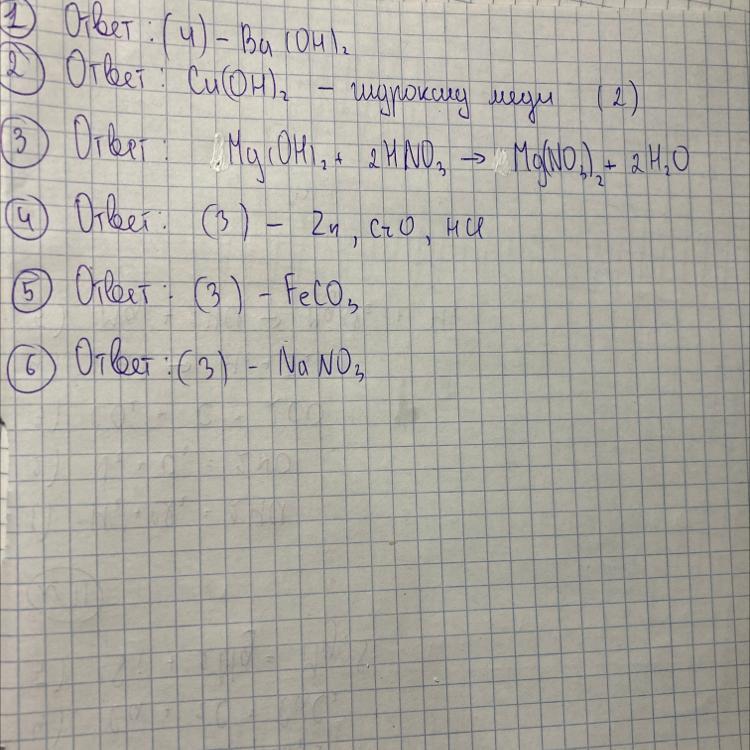 1 Ответ: (4) - Ba(OH)₂
2 Ответ: Cu(OH)₂ - гидроксид меди (2)
3 Ответ: Mg(OH)₂ + 2HNO₃ → Mg(NO₃)₂ + 2H₂O
4 Ответ: (3) - Zn, CrO, HCl
5 Ответ: (3) - FeCO₃
6 Ответ: (3) - NaNO₃